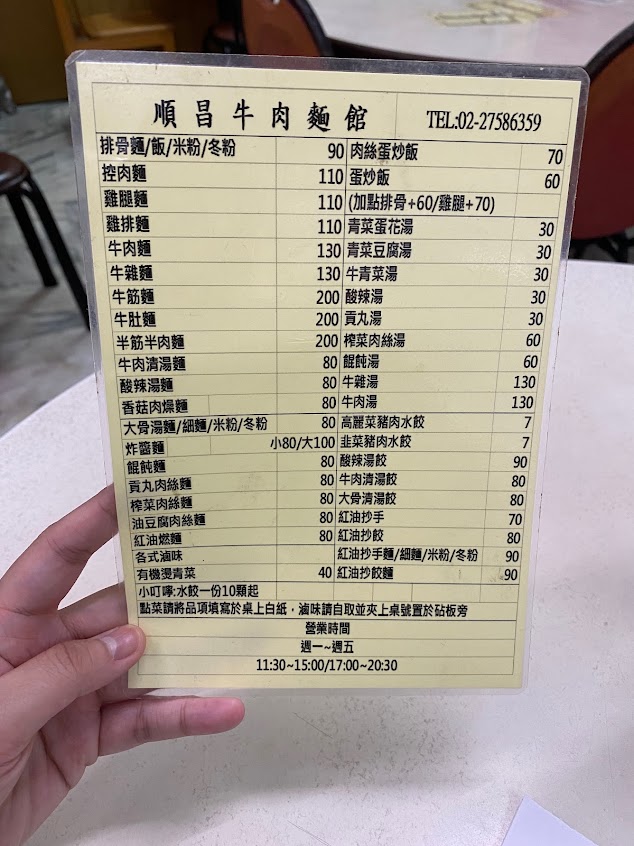 順昌牛肉麵館 TEL:02-27586359
排骨麵/飯/米粉/冬粉 90 肉絲蛋炒飯 70
控肉麵 110 蛋炒飯 60
雞腿麵 110 (加點排骨+60/雞腿+70)
雞排麵 110 青菜蛋花湯 30
牛肉麵 130 青菜豆腐湯 30
牛雜麵 130 牛青菜湯 30
牛筋麵 200 酸辣湯 30
牛肚麵 200 貢丸湯 30
半筋半肉麵 200 榨菜肉絲湯 60
牛肉清湯麵 80 餛飩湯 60
酸辣湯麵 80 牛雜湯 130
香菇肉燥麵 80 牛肉湯 130
大骨湯麵/細麵/米粉/冬粉 80 高麗菜豬肉水餃 7
炸醬麵 小80/大100 韭菜豬肉水餃 7
餛飩麵 80 酸辣湯餃 90
貢丸肉絲麵 80 牛肉清湯餃 80
榨菜肉絲麵 80 大骨清湯餃 80
油豆腐肉絲麵 80 紅油抄手 70
紅油燃麵 80 紅油抄餃 80
各式滷味 紅油抄手麵/細麵/米粉/冬粉 90
有機燙青菜 40 紅油抄餃麵 90
小叮嚀:水餃一份10顆起
點菜請將品項填寫於桌上白紙，滷味請自取並夾上桌號置於砧板旁
營業時間
週一~週五
11:30~15:00/17:00~20:30